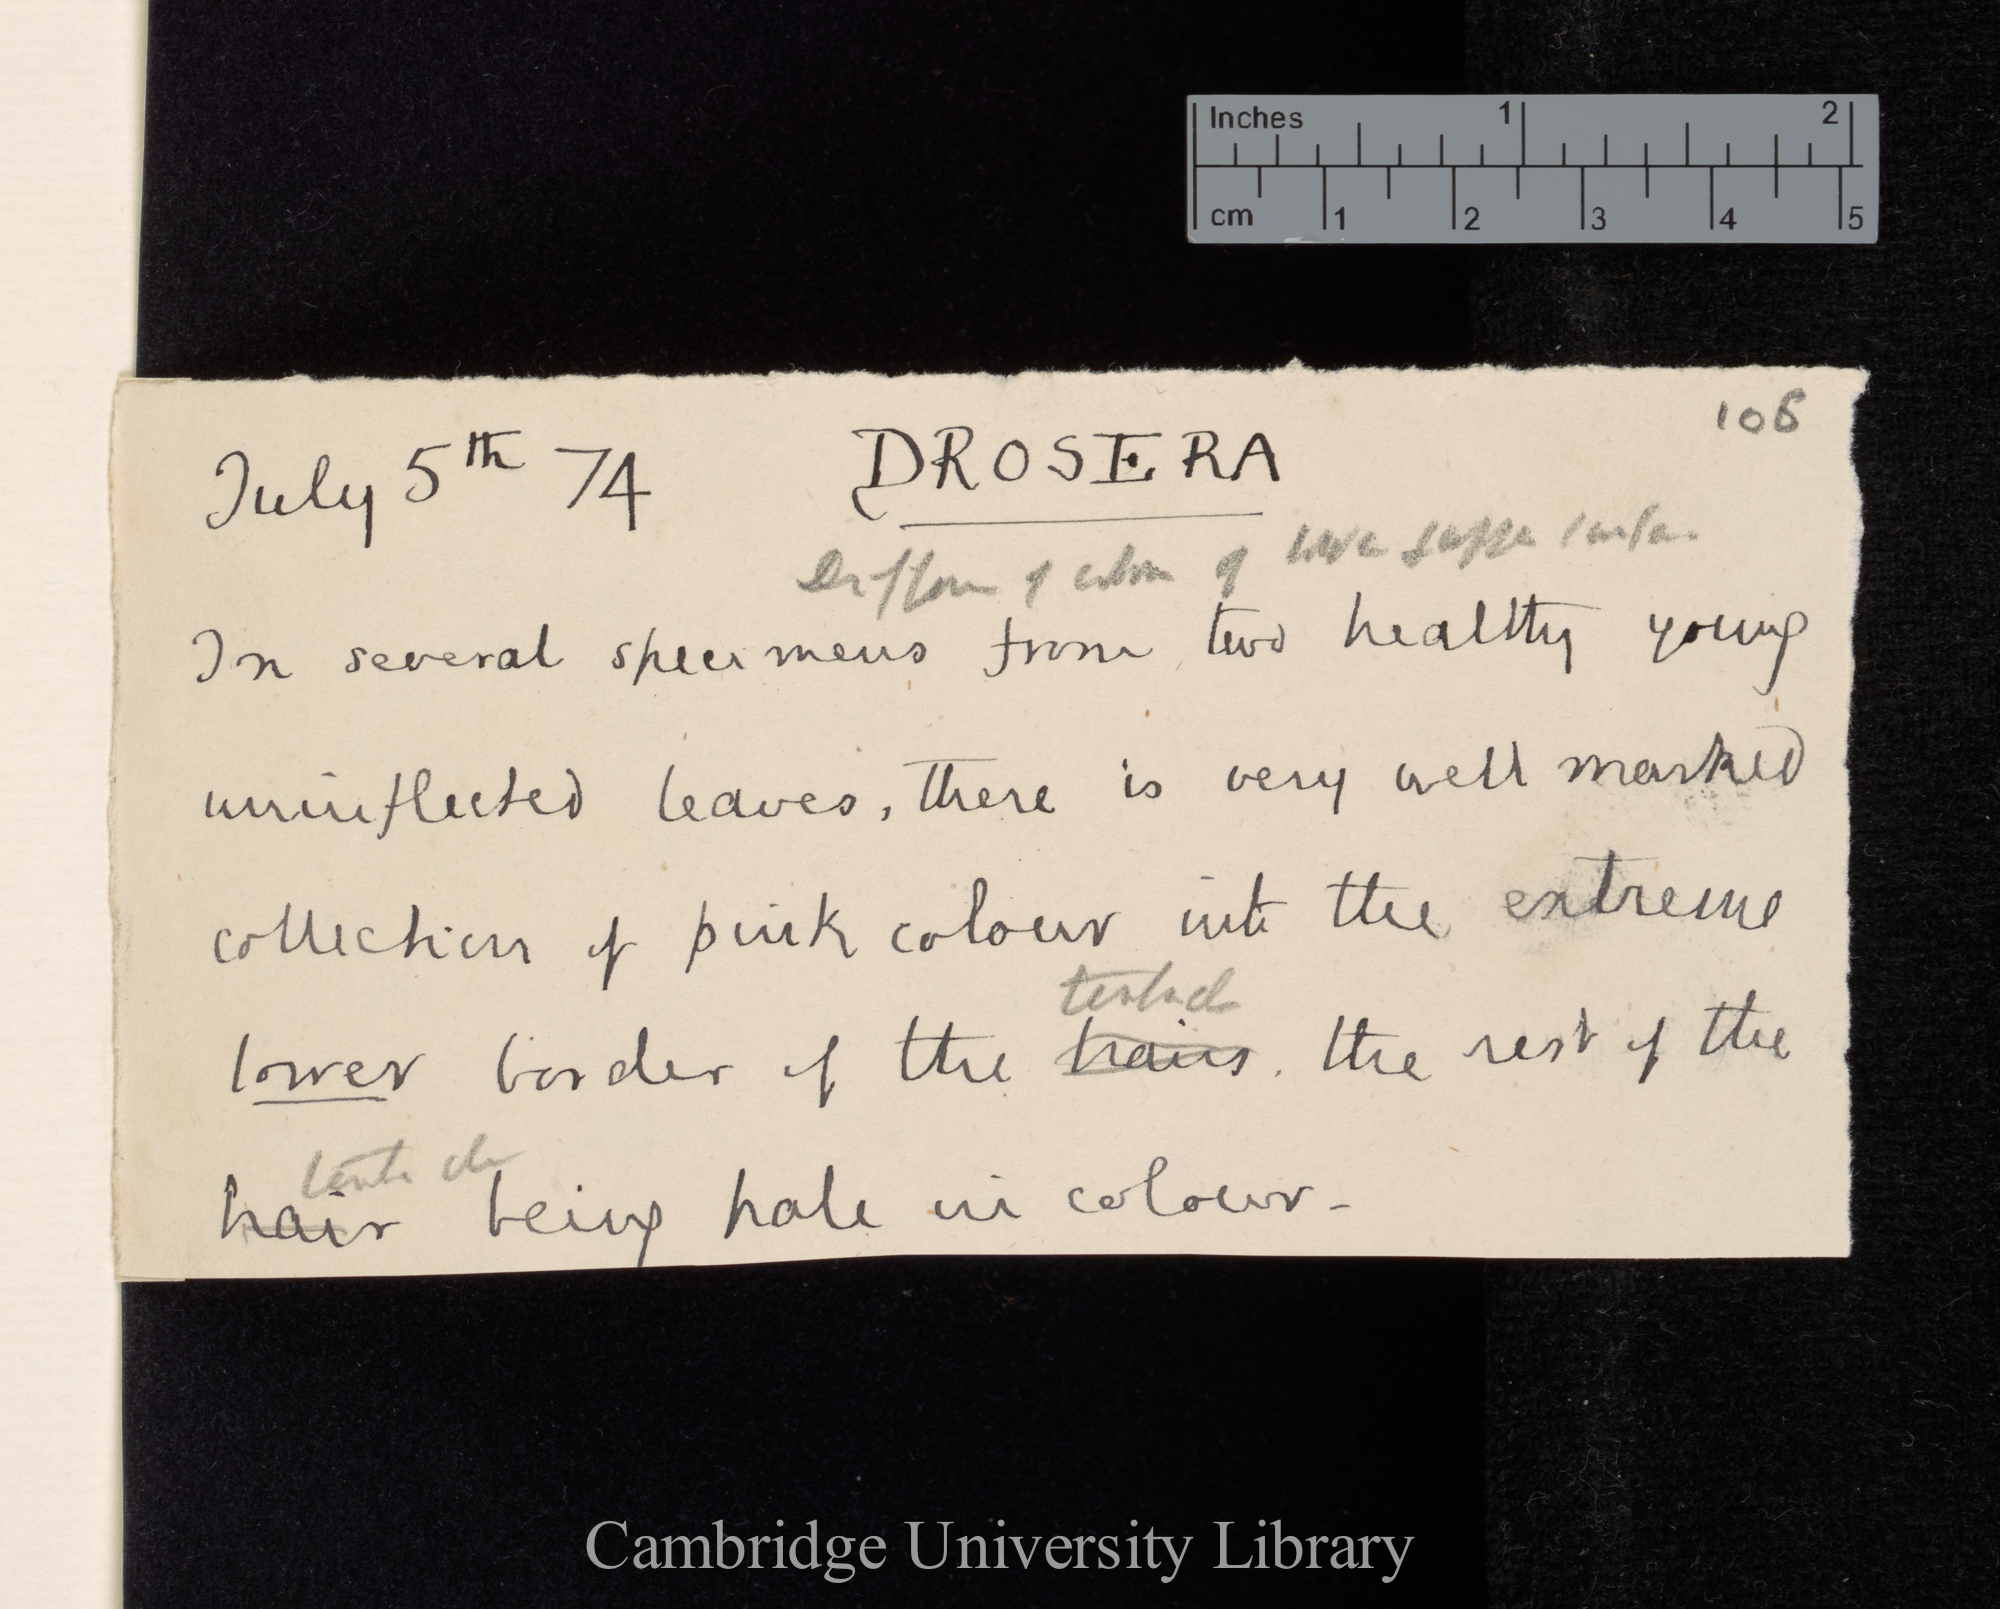 Inches 1 2
cm 1 2 3 4 5
106
July 5th 74 DROSERA
of colour of lower & upper surface
In several specimens from two healthy young
uninflected leaves, there is very well marked
collection of pink colour into the extreme
tentacle
lower border of the hairs. the rest of the
tentacle
hair being pale in colour -
Cambridge University Library